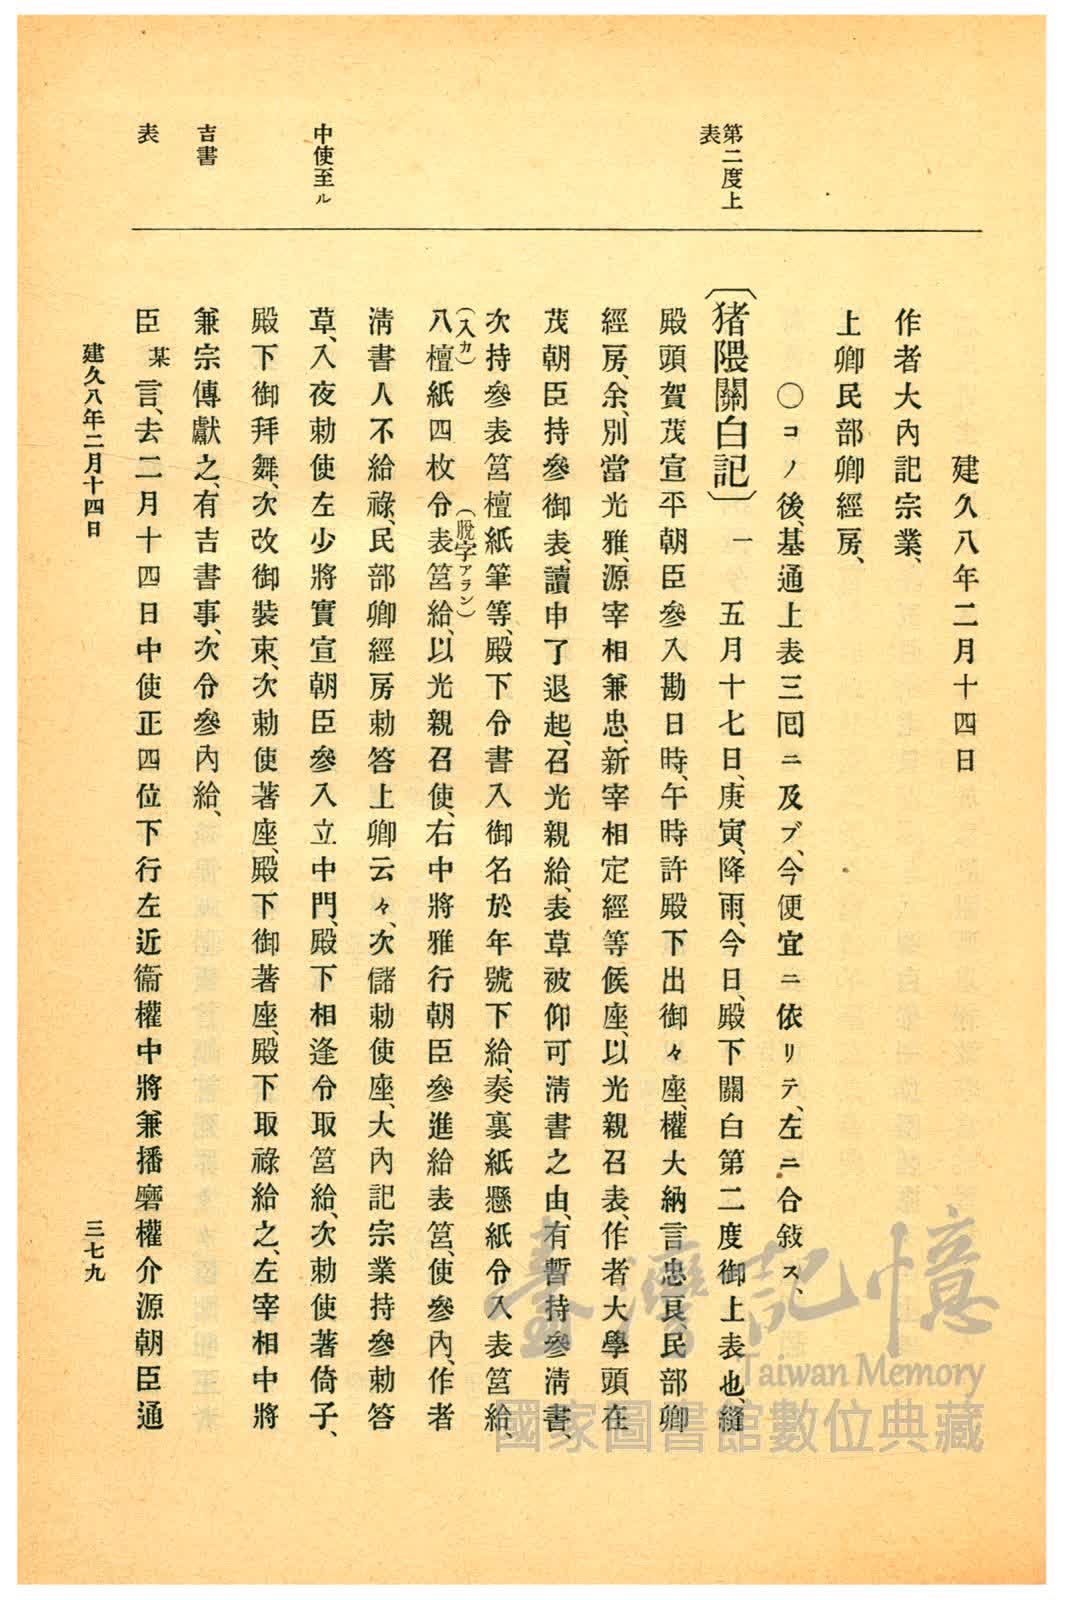 建久八年二月十四日
作者大內記宗業、
上卿民部卿經房、
〇コノ後、基通上表三囘ニ及ブ、今便宜ニ依リテ、左ニ合敍ス、
第二度上表
〔猪隈關白記〕一 五月十七日、庚寅、降雨、今日、殿下關白第二度御上表也、縫
殿頭賀茂宣平朝臣參入勘日時、午時許殿下出御々座、權大納言忠良民部卿
經房、余、別當光雅、源宰相兼忠、新宰相定經等候座、以光親召表、作者大學頭在
茂朝臣持參御表、讀申了退起、召光親給、表草被仰可淸書之由、有暫持參淸書、
次持參表筥檀紙筆等、殿下令書入御名於年號下給、奏裏紙懸紙令入表筥給、
(入カ)
(脫字アラン)
八檀紙四枚令表筥給、以光親召使、右中將雅行朝臣參進給表筥、使參內、作者
淸書人不給祿、民部卿經房勅答上卿云々、次儲勅使座、大內記宗業持參勅答
中使至ル
草、入夜勅使左少將實宣朝臣參入立中門、殿下相逢令取筥給、次勅使著倚子、
殿下御拜舞、次改御裝束、次勅使著座、殿下御著座、殿下取祿給之、左宰相中將
吉書
兼宗傳獻之、有吉書事、次令參內給、
表
臣某言、去二月十四日中使正四位下行左近衞權中將兼播磨權介源朝臣通
建久八年二月十四日
三七九
臺灣記憶
Taiwan Memory
國家圖書館數位典藏